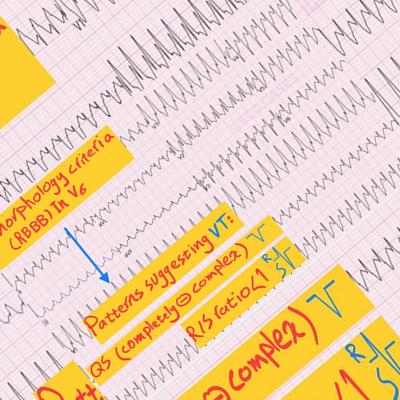 morphology criteria
(RBBB) In V6
Patterns suggesting VT:
QS (completely ⊖ complex)
R/S ratio <1 R S
⊖ complex)
R